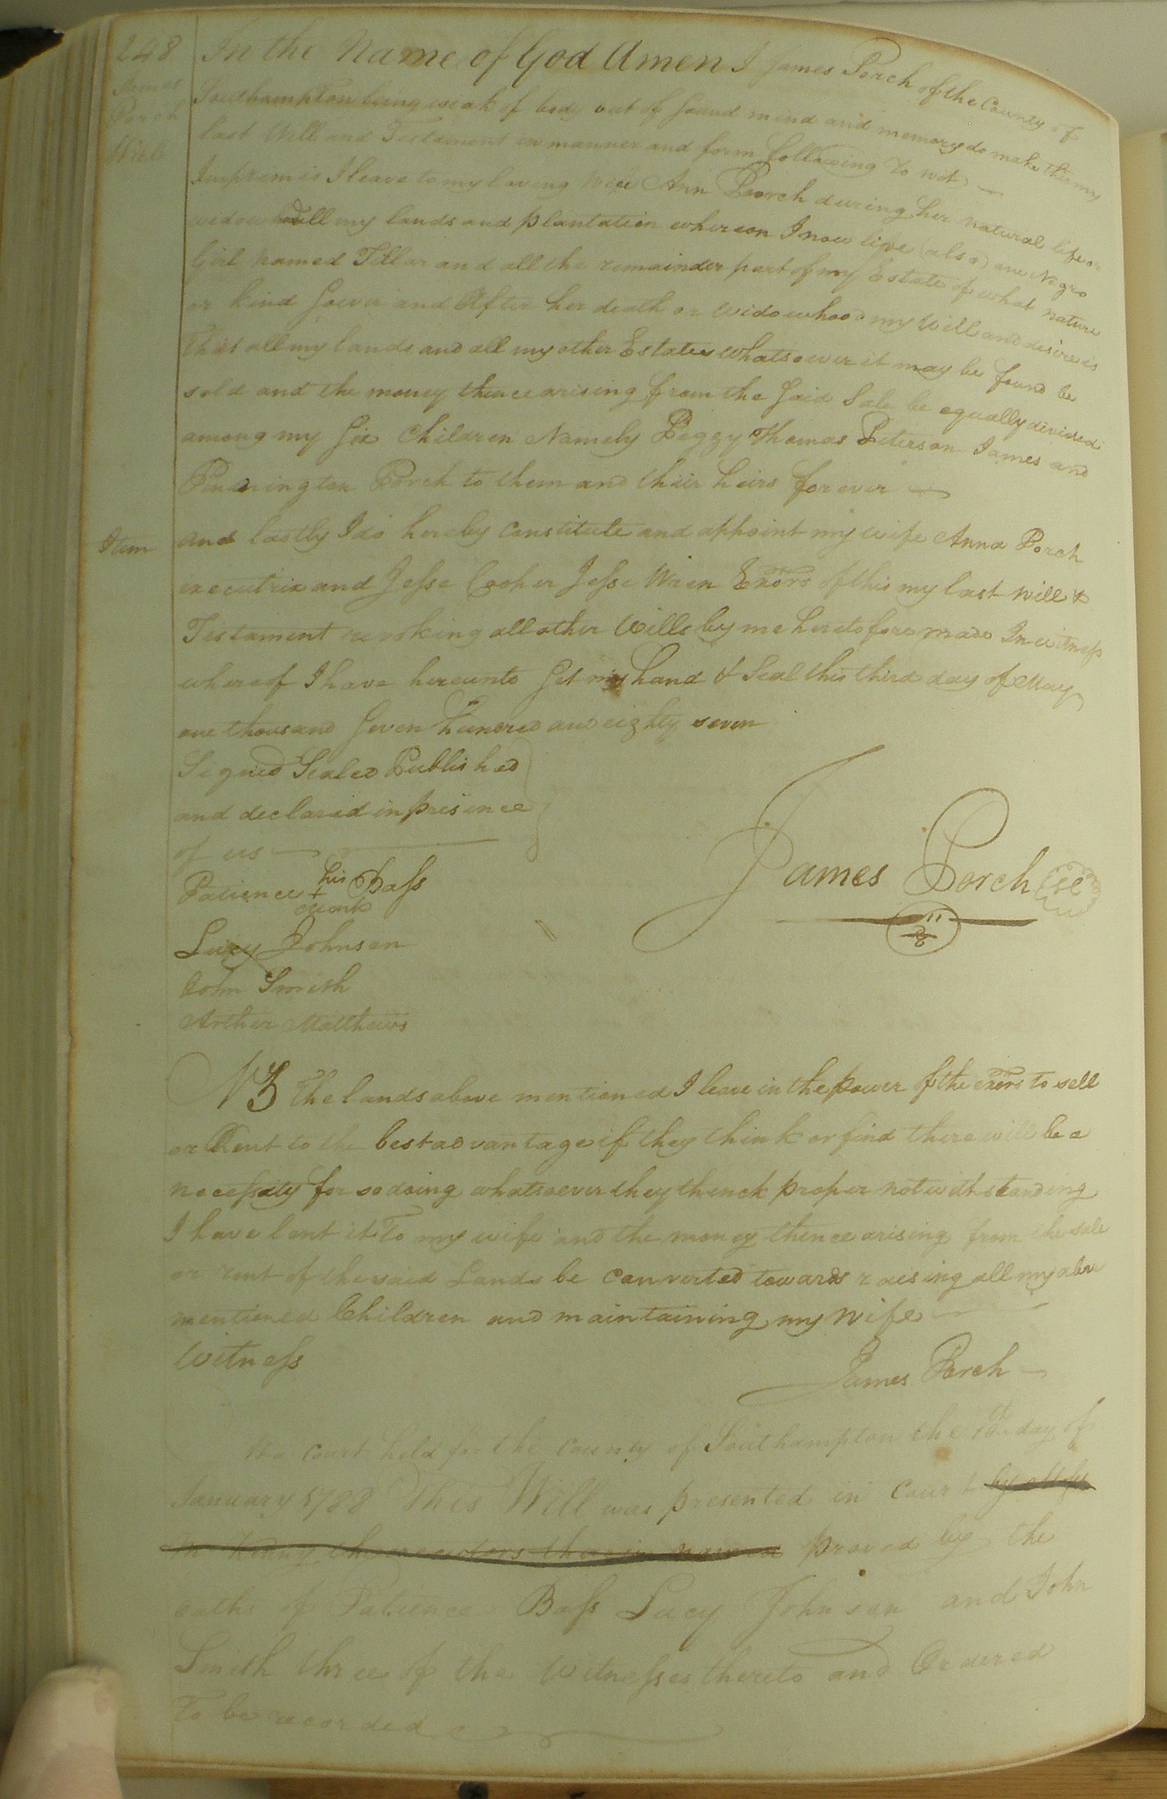 248
James
Porch
Will
In the Name of God Amen I James Porch of the County of
Southampton being weak of body but of sound mind and memory do make this my
last Will and Testament in manner and form following To wit
Impremis I leave to my loving wife Ann Porch during her natural life or
widowhood all my lands and plantation whereon I now live (also) one Negro
Girl named Tillar and all the remainder part of my Estate of what nature
or kind soever and After her death or widowhood my Will and desire is
that all my lands and all my other Estate whatsoever it may be found be
sold and the money thence arising from the said Sale be equally divided
among my Six Children Namely Peggy Thomas Peterson James and
Pennington Porch to them and their heirs forever
Item and lastly I do hereby constitute and appoint my wife Anna Porch
executrix and Jesse Cooper Jesse Wren Exors of this my last will &
Testament revoking all other Wills by me heretofore made In witness
whereof I have hereunto Set my hand & Seal this third day of May
one thousand Seven Hundred and eighty seven
Signed Sealed Published
and declared in presence
of us
James Porch
his
Patience + Bass
mark
Lucy Johnson
John Smith
Arther Matthews
NB The lands above mentioned I leave in the power of the exors to sell
or Rent to the best advantage if they think or find there will be a
necessaty for so doing whatsoever they thinck proper notwithstanding
I have lent it To my wife and the money thence arising from the sale
or rent of the said Lands be converted towards raising all my above
mentioned Children and maintaining my wife
Witness
James Porch
At a Court held for the County of Southampton the day of
January 1788 This Will was presented in Court by
the executors therein named proved by the
oaths of Patience Bass Lucy Johnson and John
Smith three of the Witnesses thereto and Ordered
To be recorded